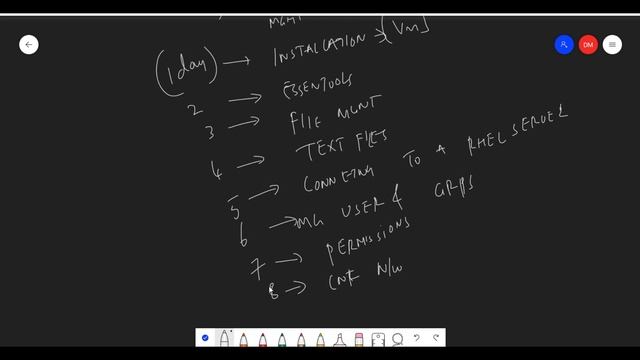 MGMT
(1 day) → INSTALLATION → [VM]
2 → ESSENTOOLS
3 → FILE MGNT
4 → TEXT FILES
5 → CONNETNG TO A RHEL SERVER
6 → MG USER & GRPS
7 → PERMISSIONS
8 → CNF N/W
DM